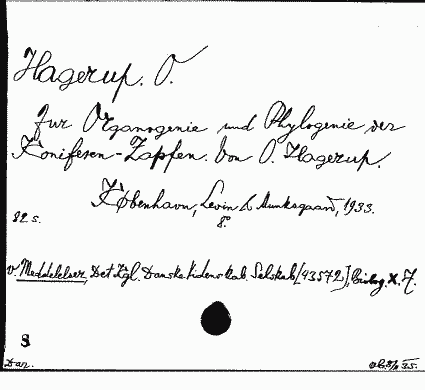 Hagerup. O.
Zur Organogenie und Phylogenie der
Koniferen-Zapfen. Von O. Hagerup.
København, Levin & Munksgaard, 1933.
82 s. 8º.
v. Meddelelser, Det Kgl. Danske Videnskab. Selskab [43572], Biolog. X. 7.
8
Dan.